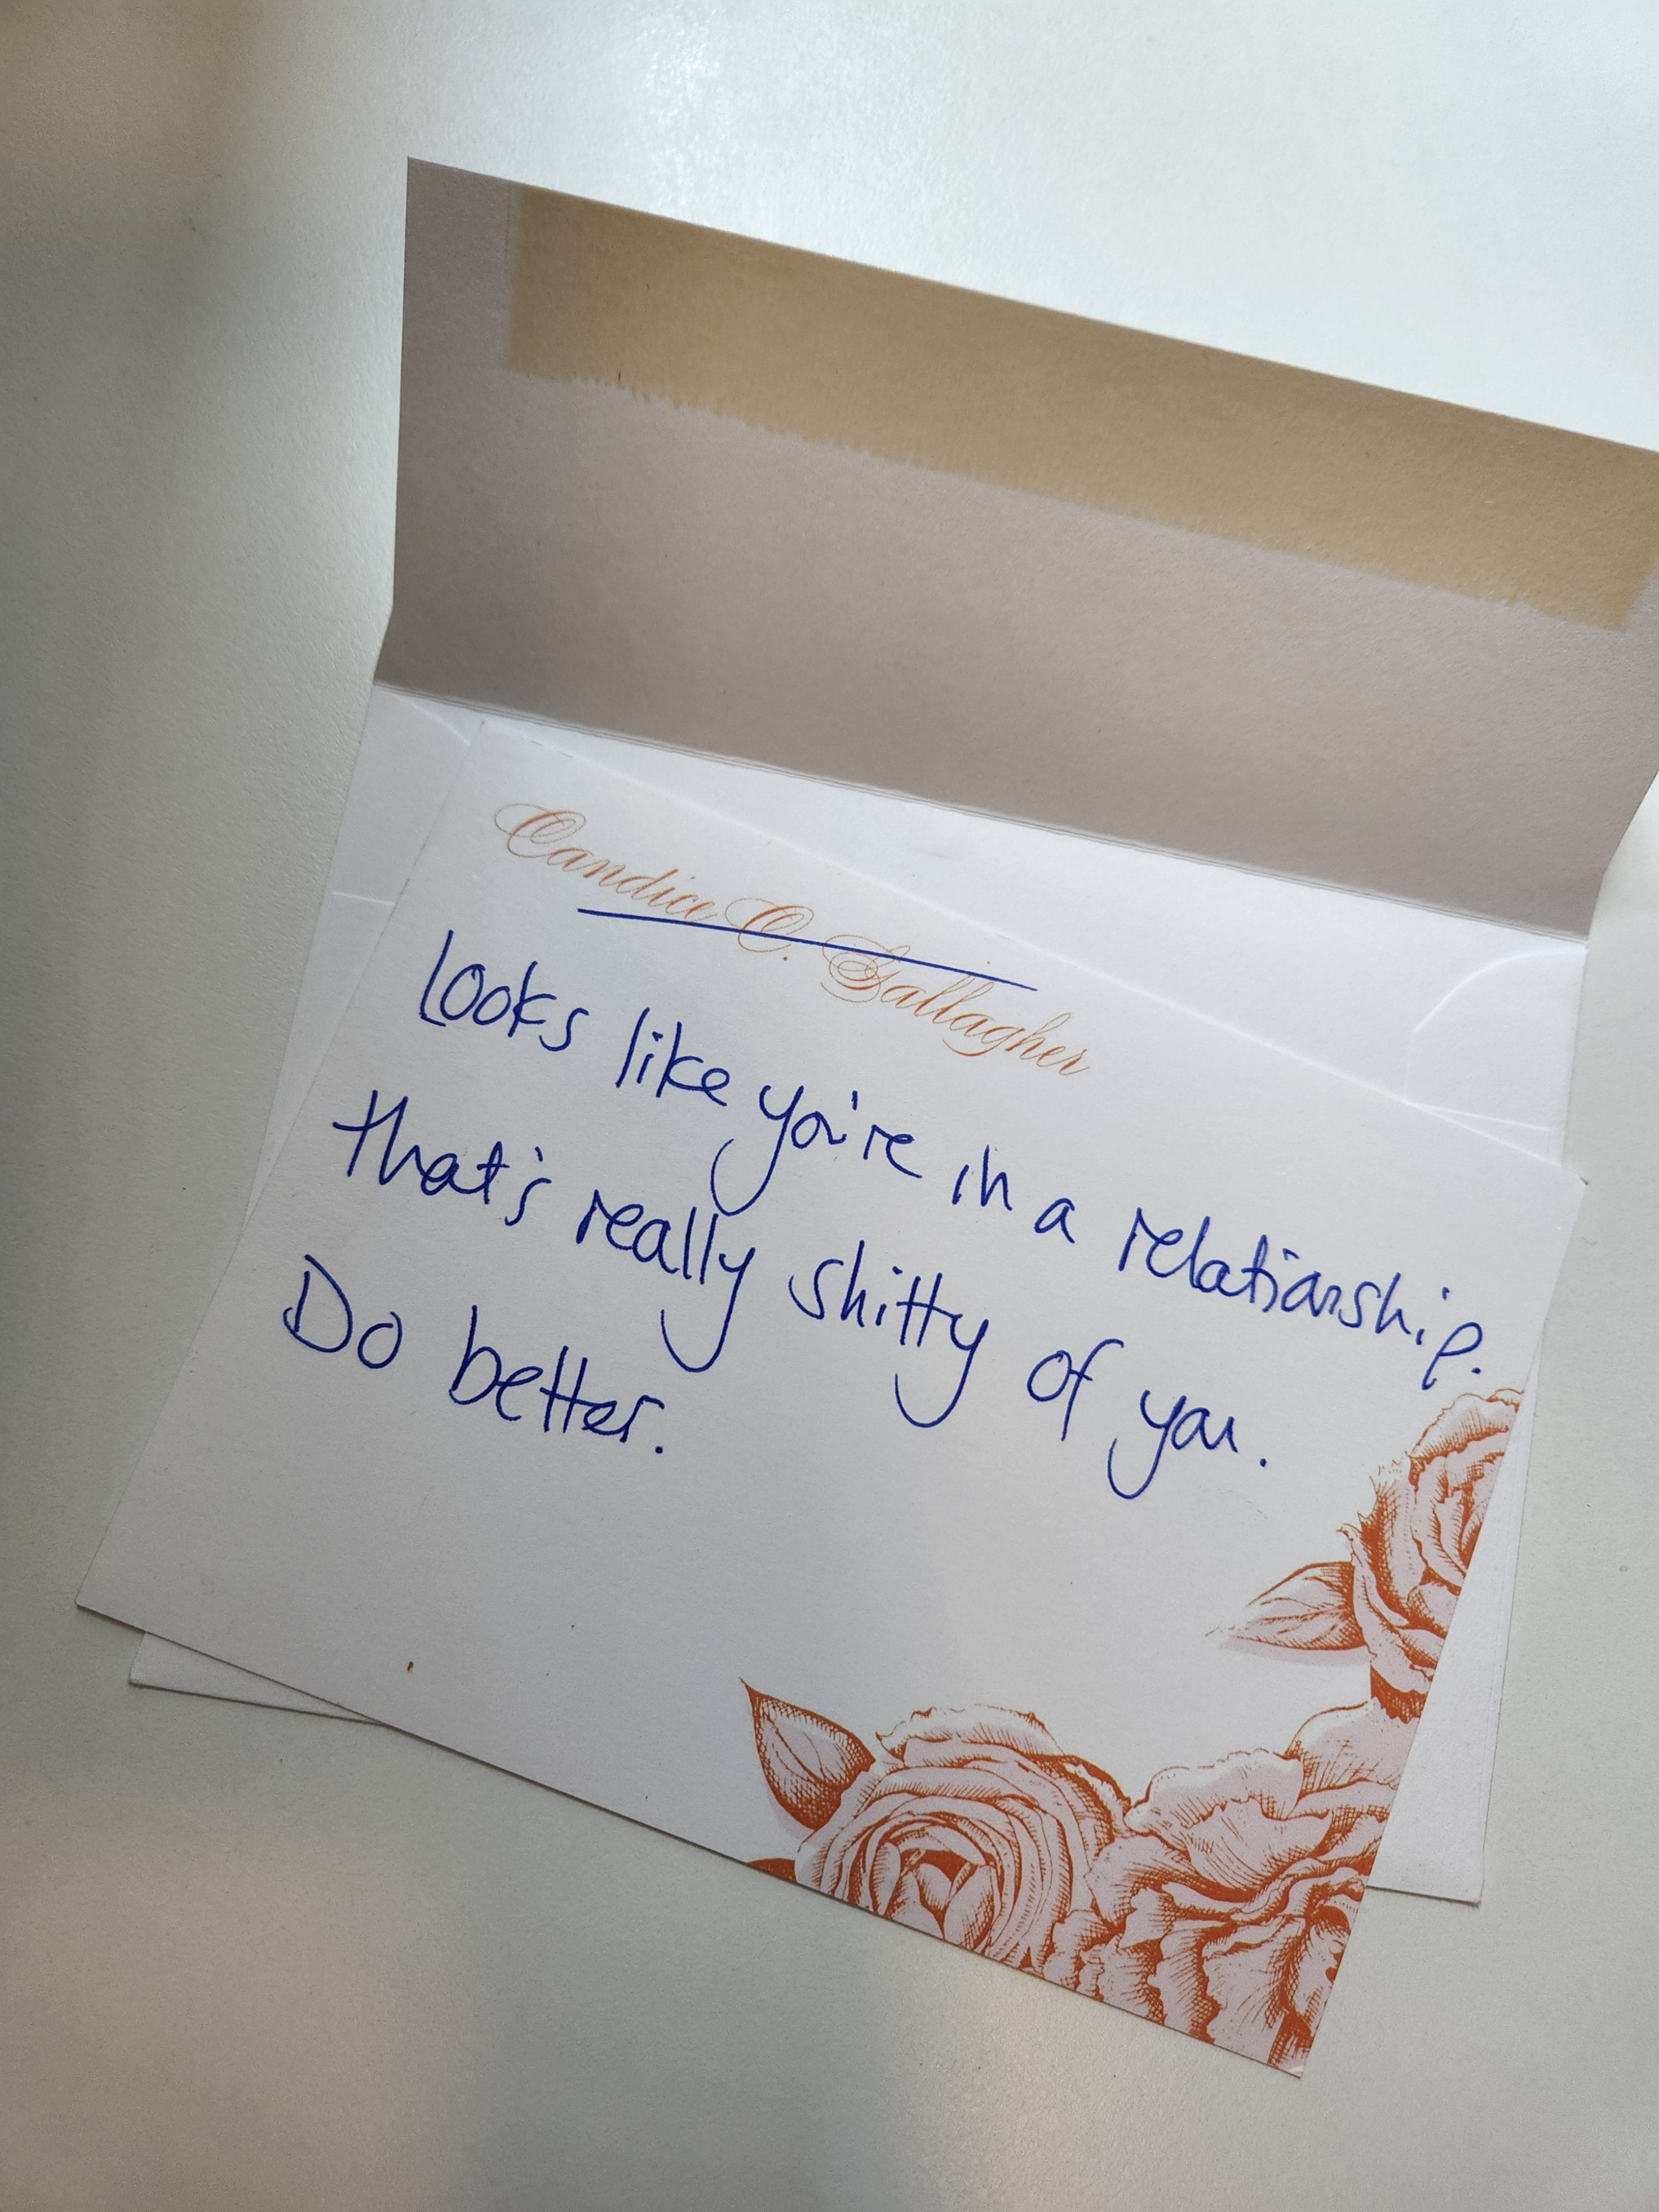 Candice C. Gallagher
Looks like you're in a relationship.
that's really shitty of you.
Do better.